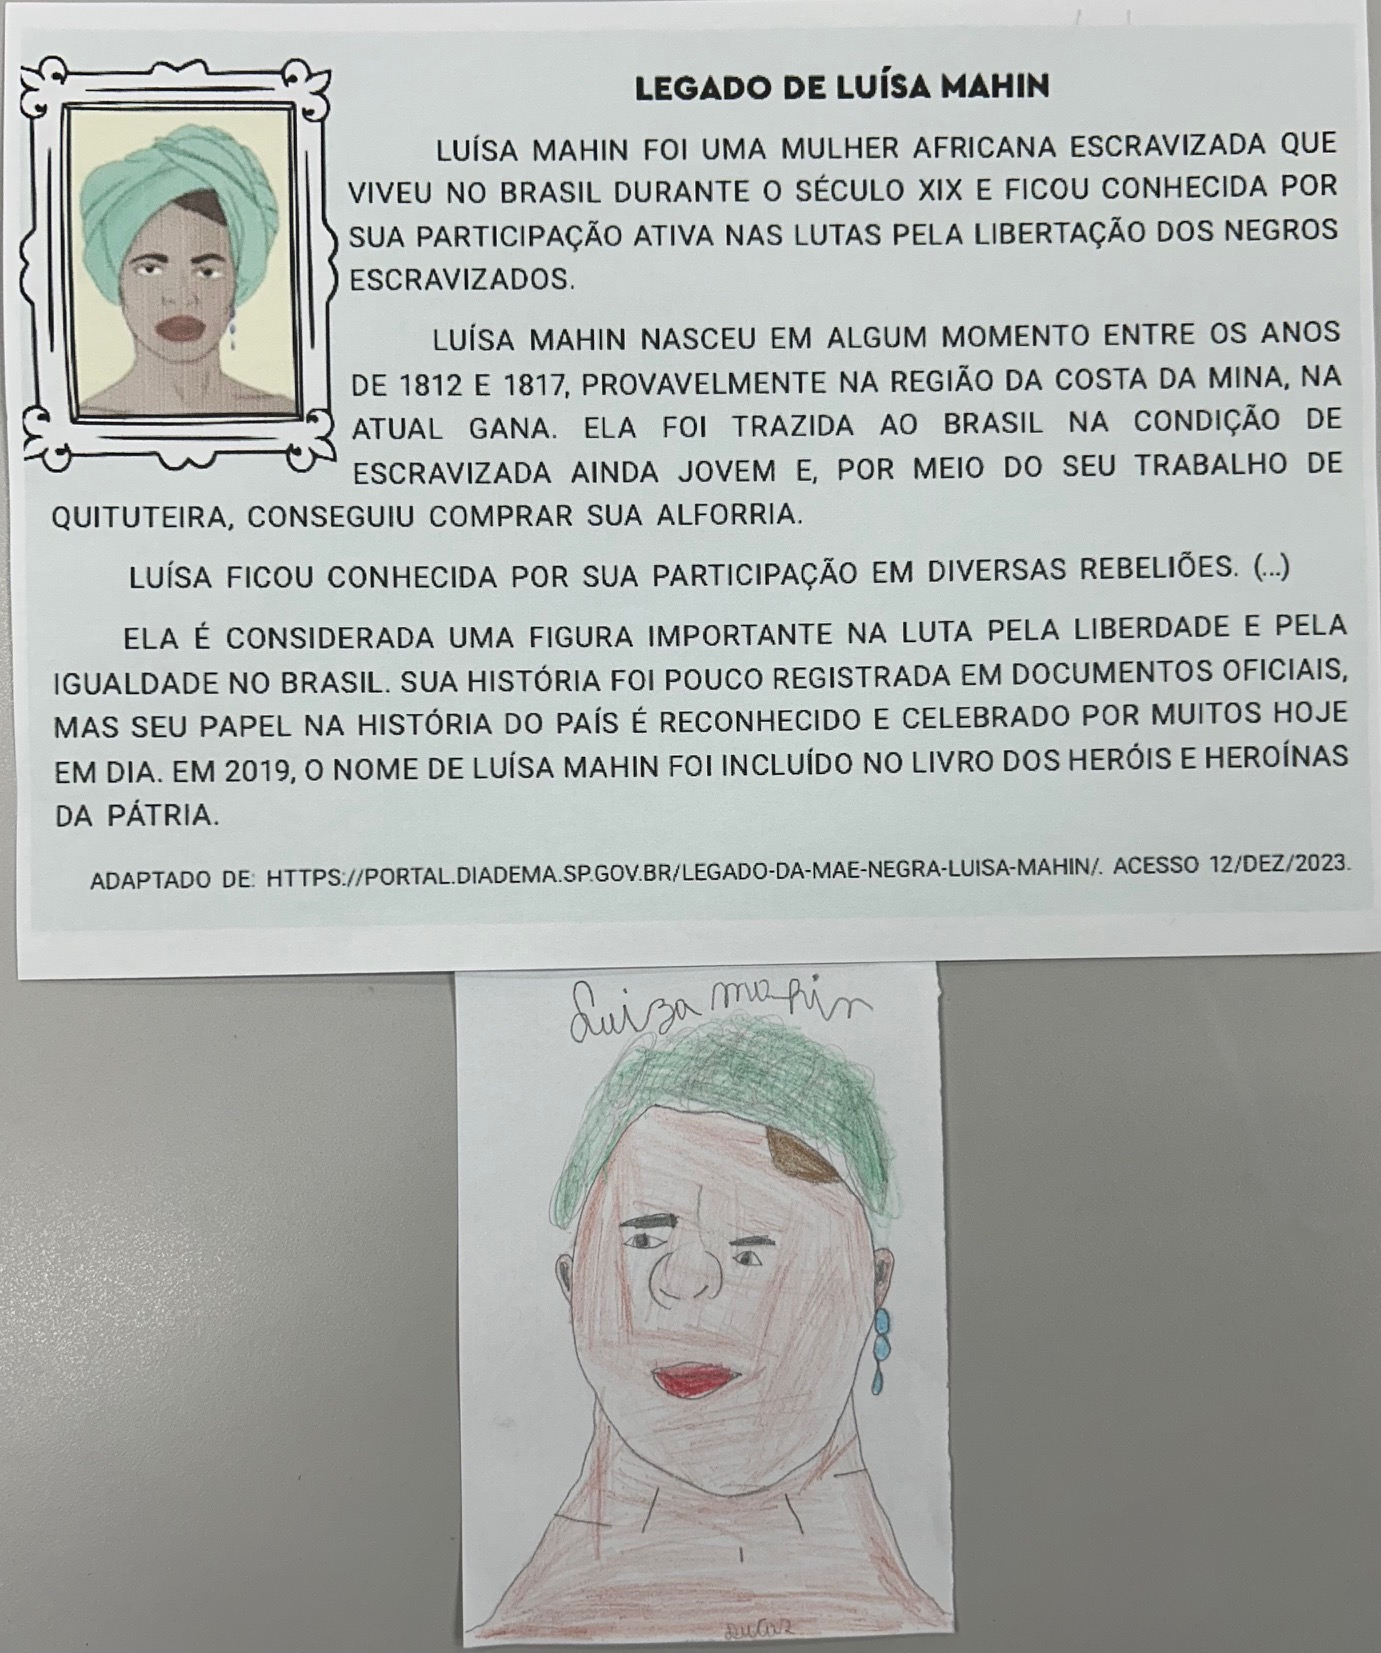 LEGADO DE LUÍSA MAHIN
LUÍSA MAHIN FOI UMA MULHER AFRICANA ESCRAVIZADA QUE
VIVEU NO BRASIL DURANTE O SÉCULO XIX E FICOU CONHECIDA POR
SUA PARTICIPAÇÃO ATIVA NAS LUTAS PELA LIBERTAÇÃO DOS NEGROS
ESCRAVIZADOS.
LUÍSA MAHIN NASCEU EM ALGUM MOMENTO ENTRE OS ANOS
DE 1812 E 1817, PROVAVELMENTE NA REGIÃO DA COSTA DA MINA, NA
ATUAL GANA. ELA FOI TRAZIDA AO BRASIL NA CONDIÇÃO DE
ESCRAVIZADA AINDA JOVEM E, POR MEIO DO SEU TRABALHO DE
QUITUTEIRA, CONSEGUIU COMPRAR SUA ALFORRIA.
LUÍSA FICOU CONHECIDA POR SUA PARTICIPAÇÃO EM DIVERSAS REBELIÕES. (...)
ELA É CONSIDERADA UMA FIGURA IMPORTANTE NA LUTA PELA LIBERDADE E PELA
IGUALDADE NO BRASIL. SUA HISTÓRIA FOI POUCO REGISTRADA EM DOCUMENTOS OFICIAIS,
MAS SEU PAPEL NA HISTÓRIA DO PAÍS É RECONHECIDO E CELEBRADO POR MUITOS HOJE
EM DIA. EM 2019, O NOME DE LUÍSA MAHIN FOI INCLUÍDO NO LIVRO DOS HERÓIS E HEROÍNAS
DA PÁTRIA.
ADAPTADO DE: HTTPS://PORTAL.DIADEMA.SP.GOV.BR/LEGADO-DA-MAE-NEGRA-LUISA-MAHIN/. ACESSO 12/DEZ/2023.
Luiza mahin